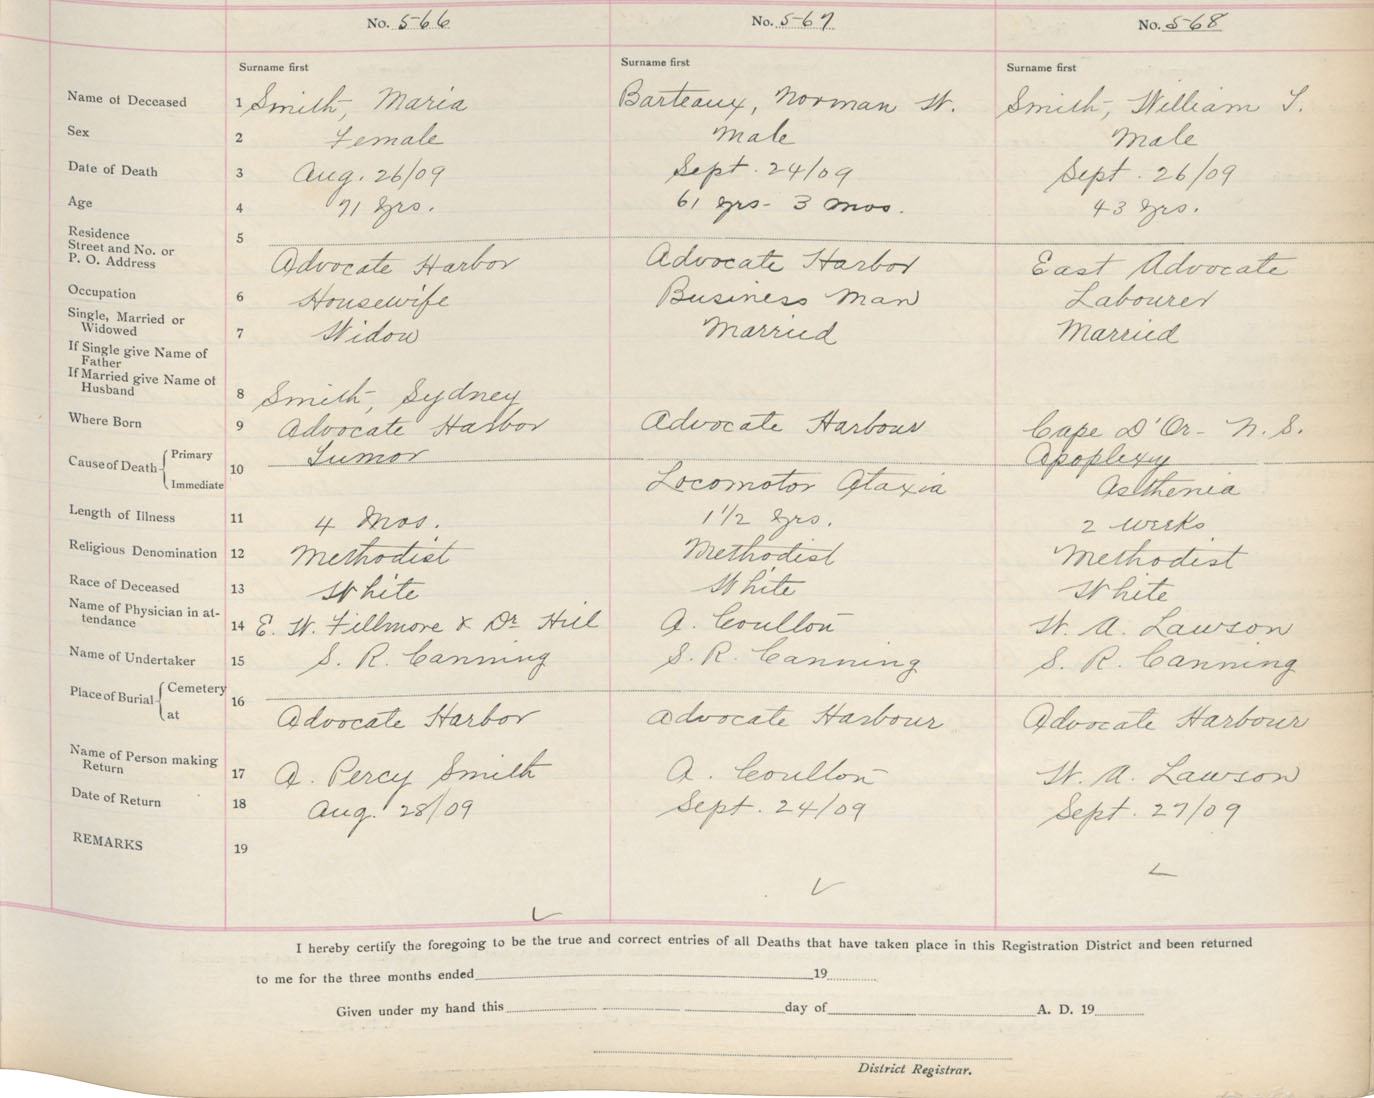 No. 566 No. 567 No. 568
Surname first Surname first Surname first
Name of Deceased 1 Smith, Maria Barteaux, Norman W. Smith, William T.
Sex 2 Female Male Male
Date of Death 3 Aug. 26/09 Sept. 24/09 Sept. 26/09
Age 4 71 yrs. 61 yrs - 3 mos. 43 yrs.
Residence 5
Street and No. or
P. O. Address Advocate Harbor Advocate Harbor East Advocate
Occupation 6 Housewife Business Man Labourer
Single, Married or
Widowed 7 Widow Married Married
If Single give Name of
Father
If Married give Name of
Husband 8 Smith, Sydney
Where Born 9 Advocate Harbor Advocate Harbour Cape D'Or - N. S.
Cause of Death Primary 10 Tumor Apoplexy
Immediate Locomotor Ataxia Asthenia
Length of Illness 11 4 Mos. 1 1/2 yrs. 2 weeks
Religious Denomination 12 Methodist Methodist Methodist
Race of Deceased 13 White White White
Name of Physician in at-
tendance 14 E. W. Fillmore & Dr Hill A. Coulton W. A. Lawson
Name of Undertaker 15 S. R. Canning S. R. Canning S. R. Canning
Place of Burial Cemetery 16
at Advocate Harbor Advocate Harbour Advocate Harbour
Name of Person making
Return 17 A. Percy Smith A. Coulton W. A. Lawson
Date of Return 18 Aug. 28/09 Sept. 24/09 Sept. 27/09
REMARKS 19
I hereby certify the foregoing to be the true and correct entries of all Deaths that have taken place in this Registration District and been returned
to me for the three months ended 19
Given under my hand this day of A. D. 19
District Registrar.